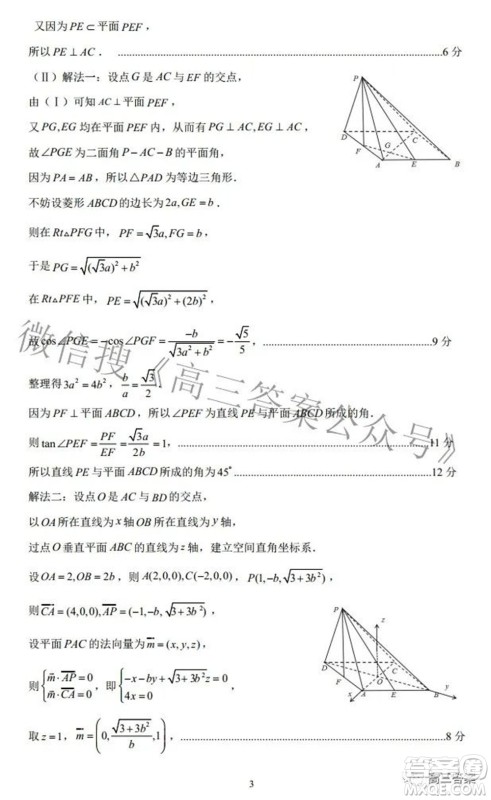 又因为 PE ⊂ 平面 PEF，
所以 PE ⊥ AC． ……6 分
（Ⅱ）解法一：设点 G 是 AC 与 EF 的交点，
由（Ⅰ）可知 AC ⊥ 平面 PEF，
又 PG, EG 均在平面 PEF 内，从而有 PG ⊥ AC, EG ⊥ AC，
故∠PGE 为二面角 P − AC − B 的平面角，
因为 PA = AB，所以△PAD 为等边三角形．
不妨设菱形 ABCD 的边长为 2a, GE = b．
则在 Rt△PFG 中，PF = √3a, FG = b，
于是 PG = √((√3a)² + b²)
在 Rt△PFE 中，PE = √((√3a)² + (2b)²)，
故 cos∠PGE = −cos∠PGF = −b/√(3a² + b²) = −√5/5，……9 分
整理得 3a² = 4b²，b/a = √3/2．
因为 PF ⊥ 平面 ABCD，所以∠PEF 为直线 PE 与平面 ABCD 所成的角．
则 tan∠PEF = PF/EF = √3a/2b = 1，……11 分
所以直线 PE 与平面 ABCD 所成的角为 45° ……12 分
解法二：设点 O 是 AC 与 BD 的交点，
以 OA 所在直线为 x 轴 OB 所在直线为 y 轴，
过点 O 垂直平面 ABC 的直线为 z 轴，建立空间直角坐标系．
设 OA = 2, OB = 2b，则 A(2,0,0), C(−2,0,0)，P(1,−b,√(3+3b²))，
则 CA = (4,0,0), AP = (−1,−b,√(3+3b²))，
设平面 PAC 的法向量为 m = (x, y, z)，
则 { m·AP = 0, m·CA = 0，即 { −x − by + √(3+3b²)z = 0, 4x = 0
取 z = 1，m = (0, √(3+3b²)/b, 1)，……8 分
P
D
C
F
G
A
E
B
P
z
D
C
F
O
A
E
B
x
y
3
微信搜《高三答案公众号》
高三答案